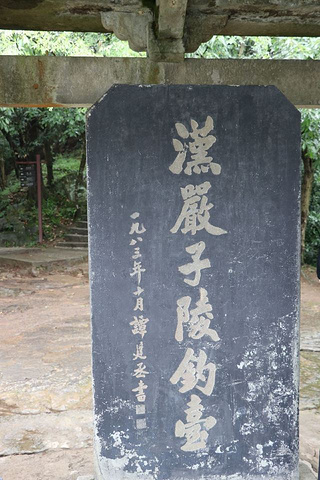 漢嚴子陵釣臺
一九八三年十月譚建丞書